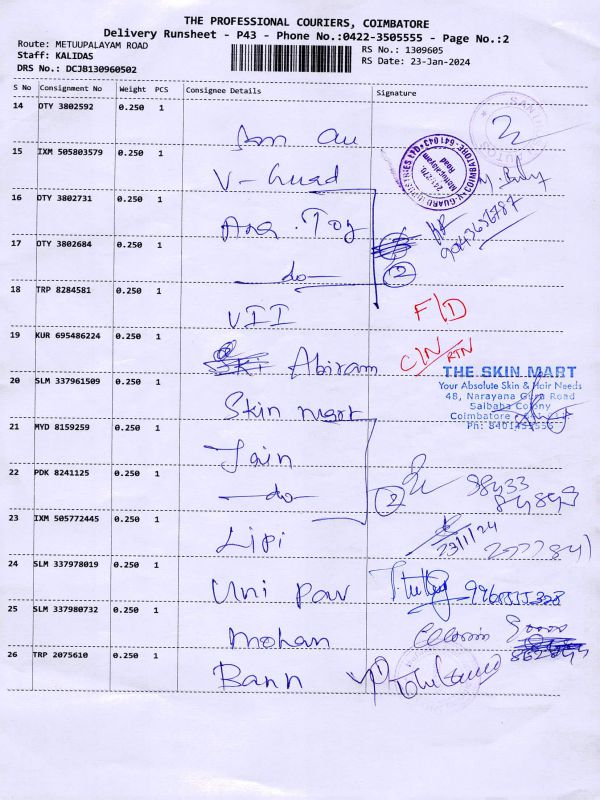 THE PROFESSIONAL COURIERS, COIMBATORE
Delivery Runsheet - P43 - Phone No.:0422-3505555 - Page No.:2
Route: METUUPALAYAM ROAD
Staff: KALIDAS
DRS No.: DCJB130960502
RS No.: 1309605
RS Date: 23-Jan-2024
S No Consignment No Weight PCS Consignee Details Signature
14 DTY 3802592 0.250 1
15 IXM 505803579 0.250 1 V-Guard
16 DTY 3802731 0.250 1 Ana. Toy
9043631787
17 DTY 3802684 0.250 1 -do- 2
18 TRP 8284581 0.250 1 VII F/D
19 KUR 695486224 0.250 1 Abiram C/N RTN
20 SLM 337961509 0.250 1 Skin mart
THE SKIN MART
Your Absolute Skin & Hair Needs
48, Narayana Guru Road
Saibaba Colony
Coimbatore
21 MYD 8159259 0.250 1 Jain
22 PDK 8241125 0.250 1 -do- 2
23 IXM 505772445 0.250 1 Lipi 23/1/24
24 SLM 337978019 0.250 1 Uni Pow
25 SLM 337980732 0.250 1 Mohan
26 TRP 2075610 0.250 1 Bann